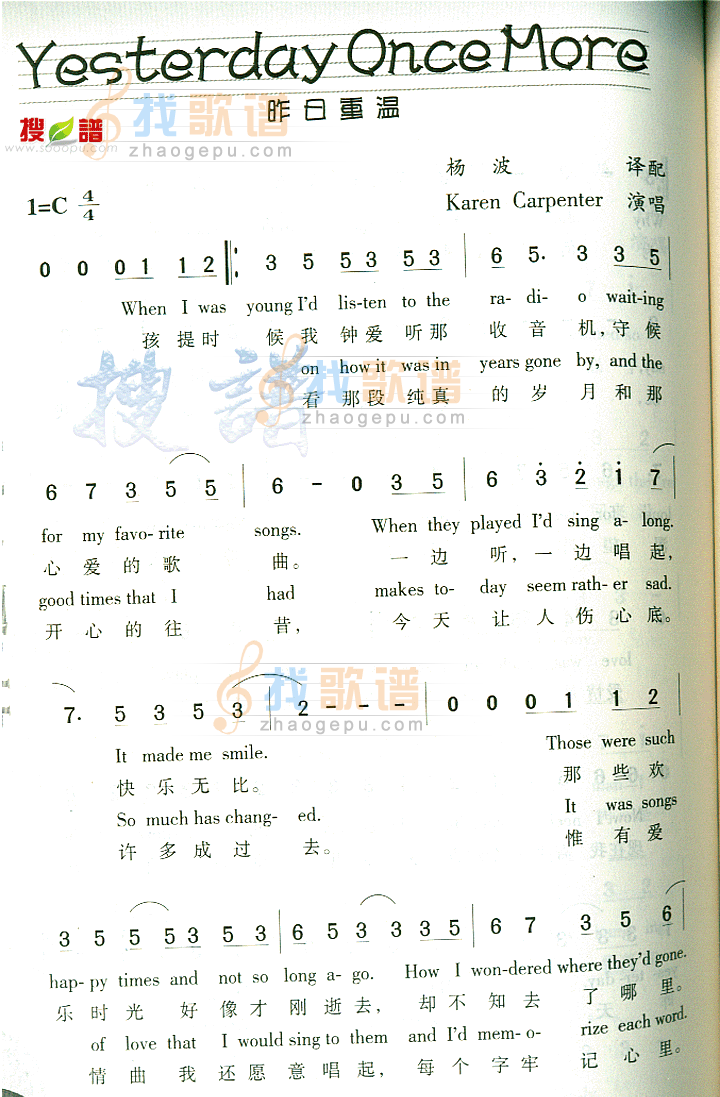 Yesterday Once More
昨日重温
搜谱
www.sooopu.com
找歌谱
zhaogepu.com
杨波 译配
1=C 4/4
Karen Carpenter 演唱
0 0 0 1 1 2 3 5 5 3 5 3 6 5. 3 3 5
When I was young I'd lis-ten to the ra- di- o wait-ing
孩提时 候我钟爱听那 收音机,守候
on how it was in years gone by, and the
看那段纯真 的岁月和那
找歌谱
zhaogepu.com
搜谱
6 7 3 5 5 6 - 0 3 5 6 3 2 1 7
for my favo-rite songs. When they played I'd sing a-long.
心爱的歌 曲。 一边听,一边唱起,
good times that I had makes to- day seem rath-er sad.
开心的往 昔, 今天让人伤心底。
找歌谱
zhaogepu.com
7. 5 3 5 3 2 - - - 0 0 0 1 1 1 2
It made me smile. Those were such
快乐无比。 那些欢
So much has chang- ed. It was songs
许多成过 去。 惟有爱
3 5 5 5 3 5 3 5 6 5 3 3 3 3 5 6 7 3 5 6
hap-py times and not so long a-go. How I won-dered where they'd gone.
乐时光 好像才刚逝去, 却不知去了哪里。
of love that I would sing to them and I'd mem-o- rize each word.
情曲我 还愿意唱起, 每个字牢记心里。